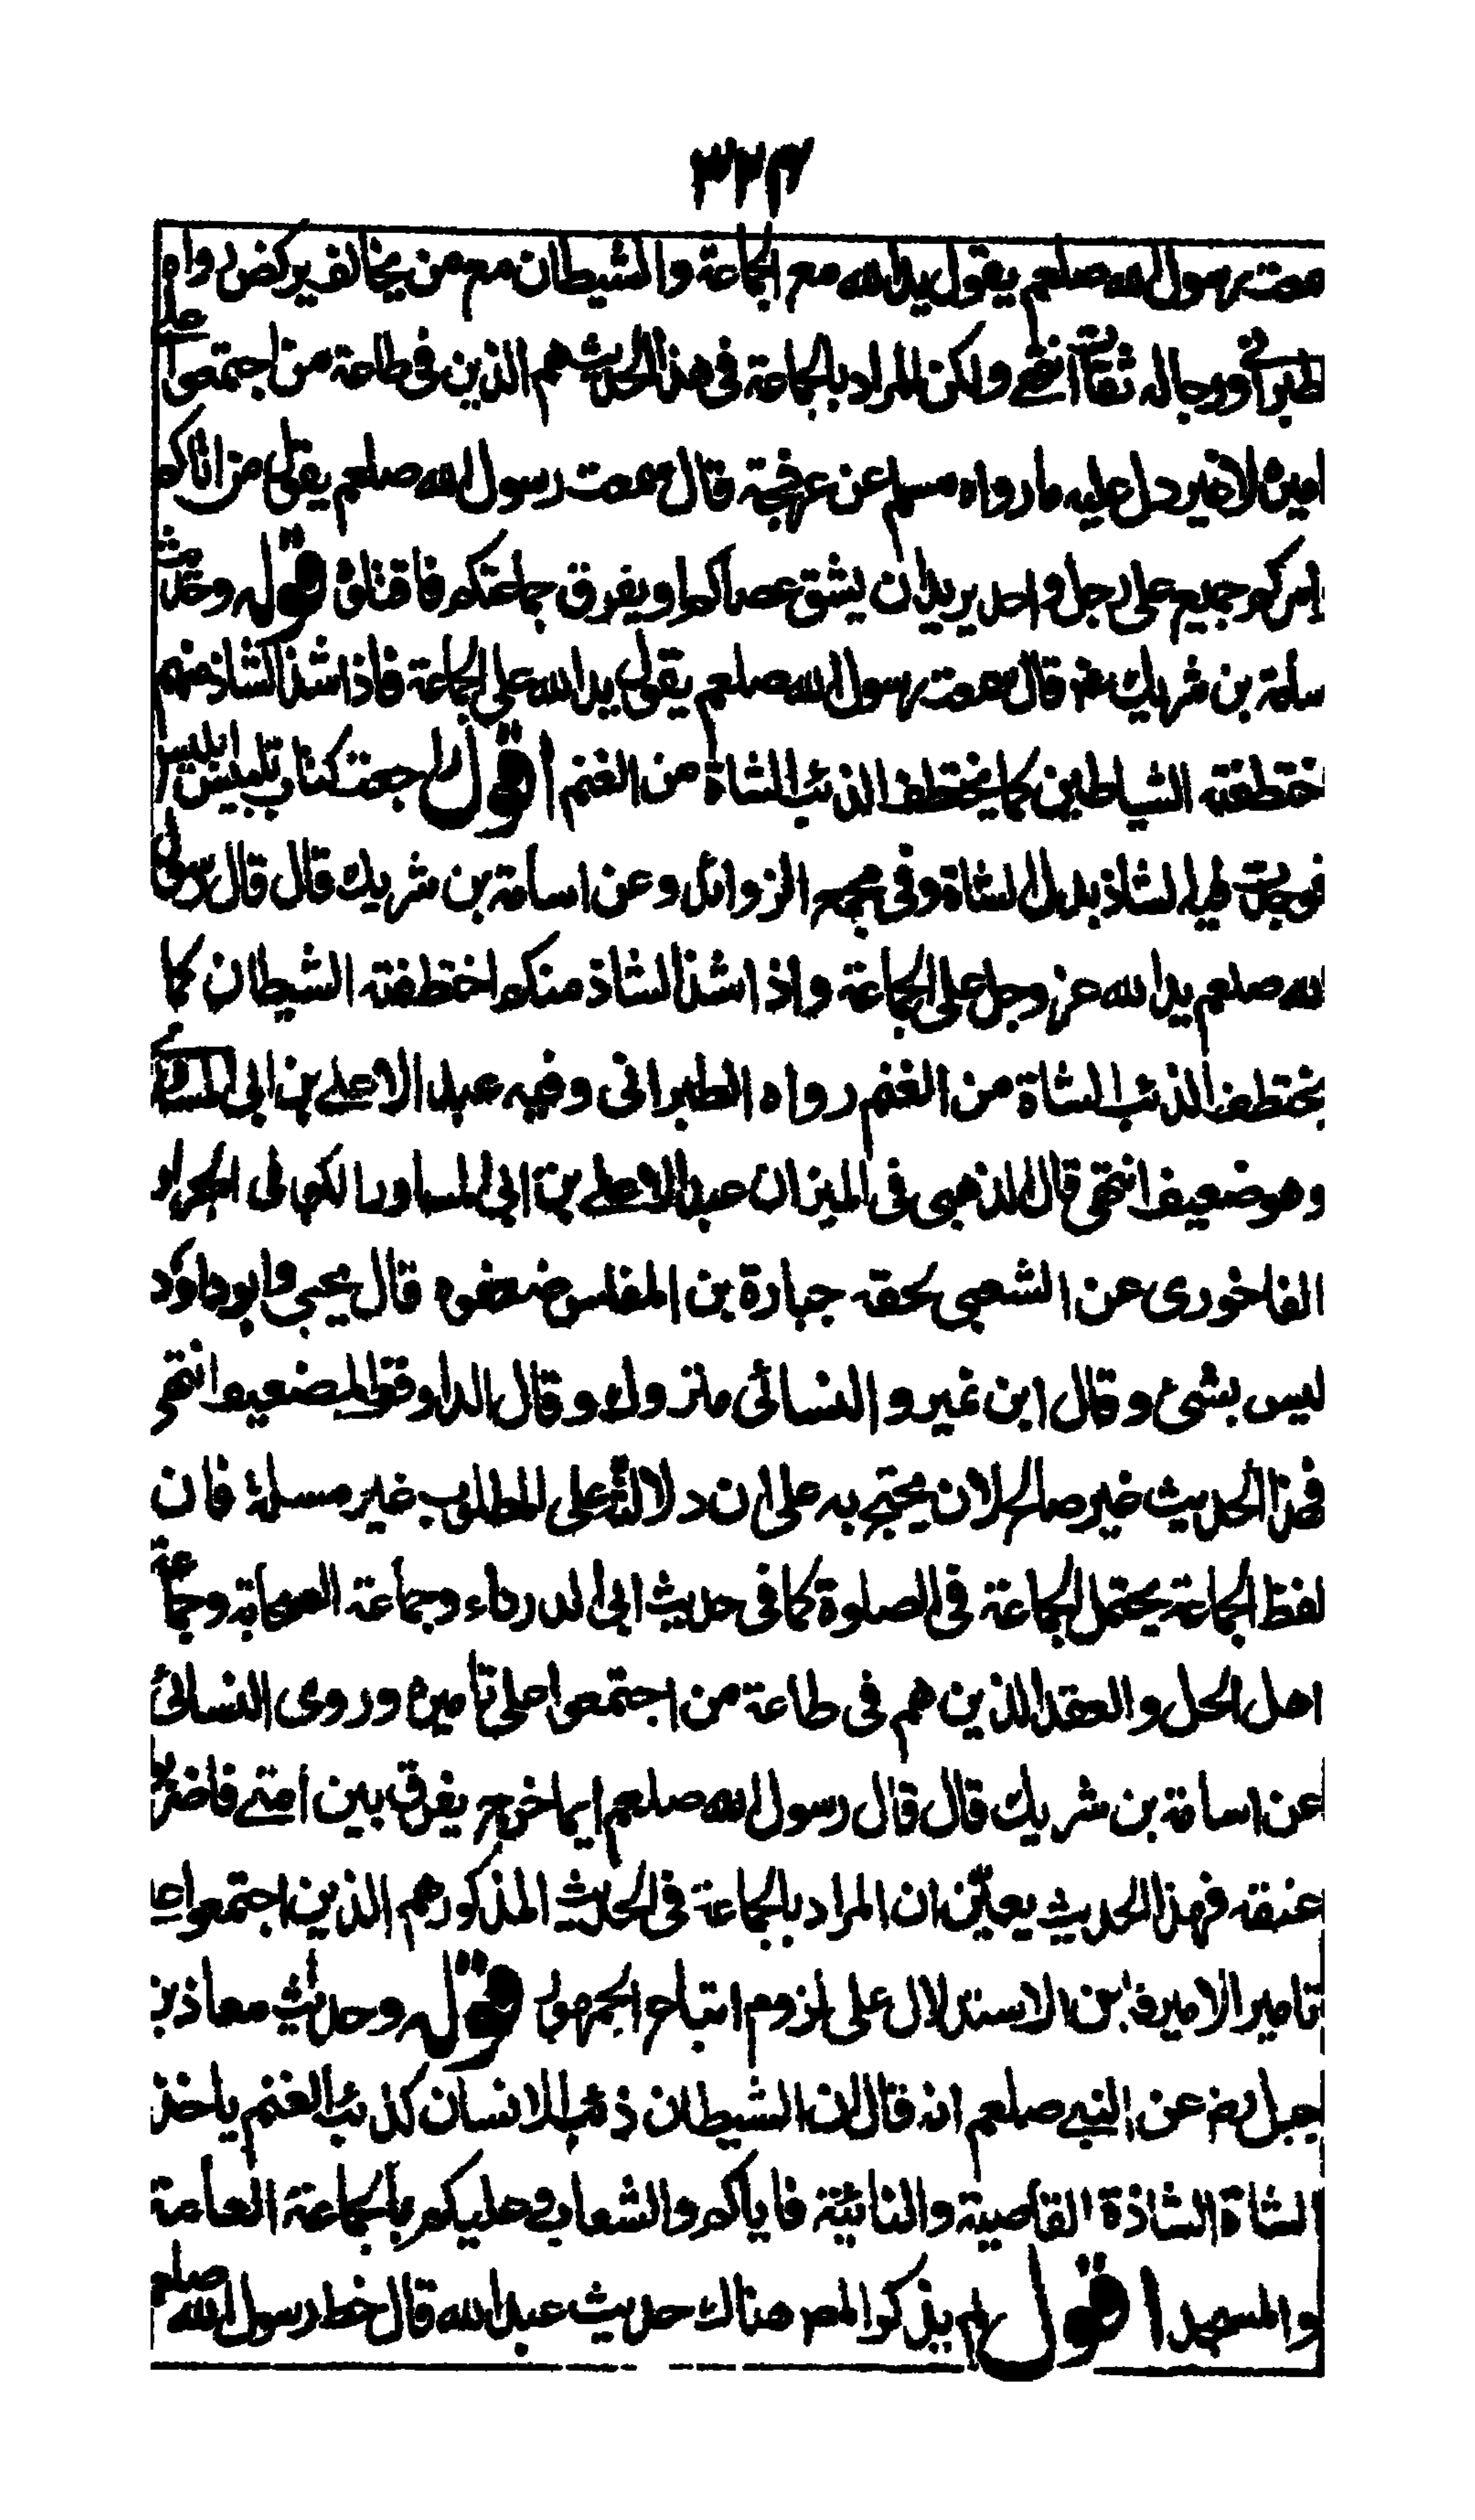 ٣٢٣
سمعت رسول الله صلعم يقول يد الله مع الجماعة والشيطان مع من يخالف يركض رواه
الطبراني ورجاله ثقات انتهى ولكن المراد بالجماعة في هذا الحديث هم الذين في طاعة من اجتمعوا على
اميرا لانه يدل عليه ما رواه مسلم عن عرفجة قال سمعت رسول الله صلعم يقول من اتاكم
وامركم جميع على رجل واحد يريد ان يشق عصاكم او يفرق جماعتكم فاقتلوه قوله وحديث
سلمة بن شريك رض قال سمعت رسول الله صلعم يقول يد الله على الجماعة فاذا شذ الشاذ منهم
اختطفته الشياطين كما يختطف الذئب الشاة من الغنم اقول راجعت كتاب تلبيس ابليس
فوجدت فيه الشاذ بدل الشاة وفي مجمع الزوائد وعن اسامة بن شريك قال قال رسول
الله صلعم يد الله عز وجل على الجماعة واذا شذ الشاذ منكم اختطفته الشيطان كما
يختطف الذئب الشاة من الغنم رواه الطبراني وفيه عبد الاعلى بن ابي المساور
وهو ضعيف انتهى قال الذهبي في الميزان عبد الاعلى بن ابي المساور الكوفي الجرار
الفاخوري عن الشعبي لحقه جبارة بن المغلس ضعفوه قال يحيى وابو داود
ليس بشئ وقال ابن نمير والنسائي متروك وقال الدارقطني ضعيف انتهى
فهذا الحديث غير صالح لان يحتج به على ان دلالته على المطلوب غير مسلمة فان
لفظ الجماعة يحتمل الجماعة في الصلوة كما في حديث ابي الدرداء وجماعة الصحابة وجماعة
اهل الحل والعقد الذين هم في طاعة من اجتمعوا على تاميره وروى النسائي
عن اسامة بن شريك قال قال رسول الله صلعم ايما خرج يفرق بين امتي فاضربوا
عنقه فهذا الحديث يعين ان المراد بالجماعة في الحديث المذكور هم الذين اجتمعوا على
تامير الامير فاين الاستدلال على لزوم اتباع الجمهور قوله وحديث معاذ بن
جبل رض عن النبي صلعم انه قال ان الشيطان ذئب الانسان كذئب الغنم ياخذ
الشاة الشاذة القاصية والنائية فاياكم والشعاب وعليكم بالجماعة العامة
والمسجد اقول لم يذكر المص هناك حديث عبد الله قال خط رسول الله صلعم